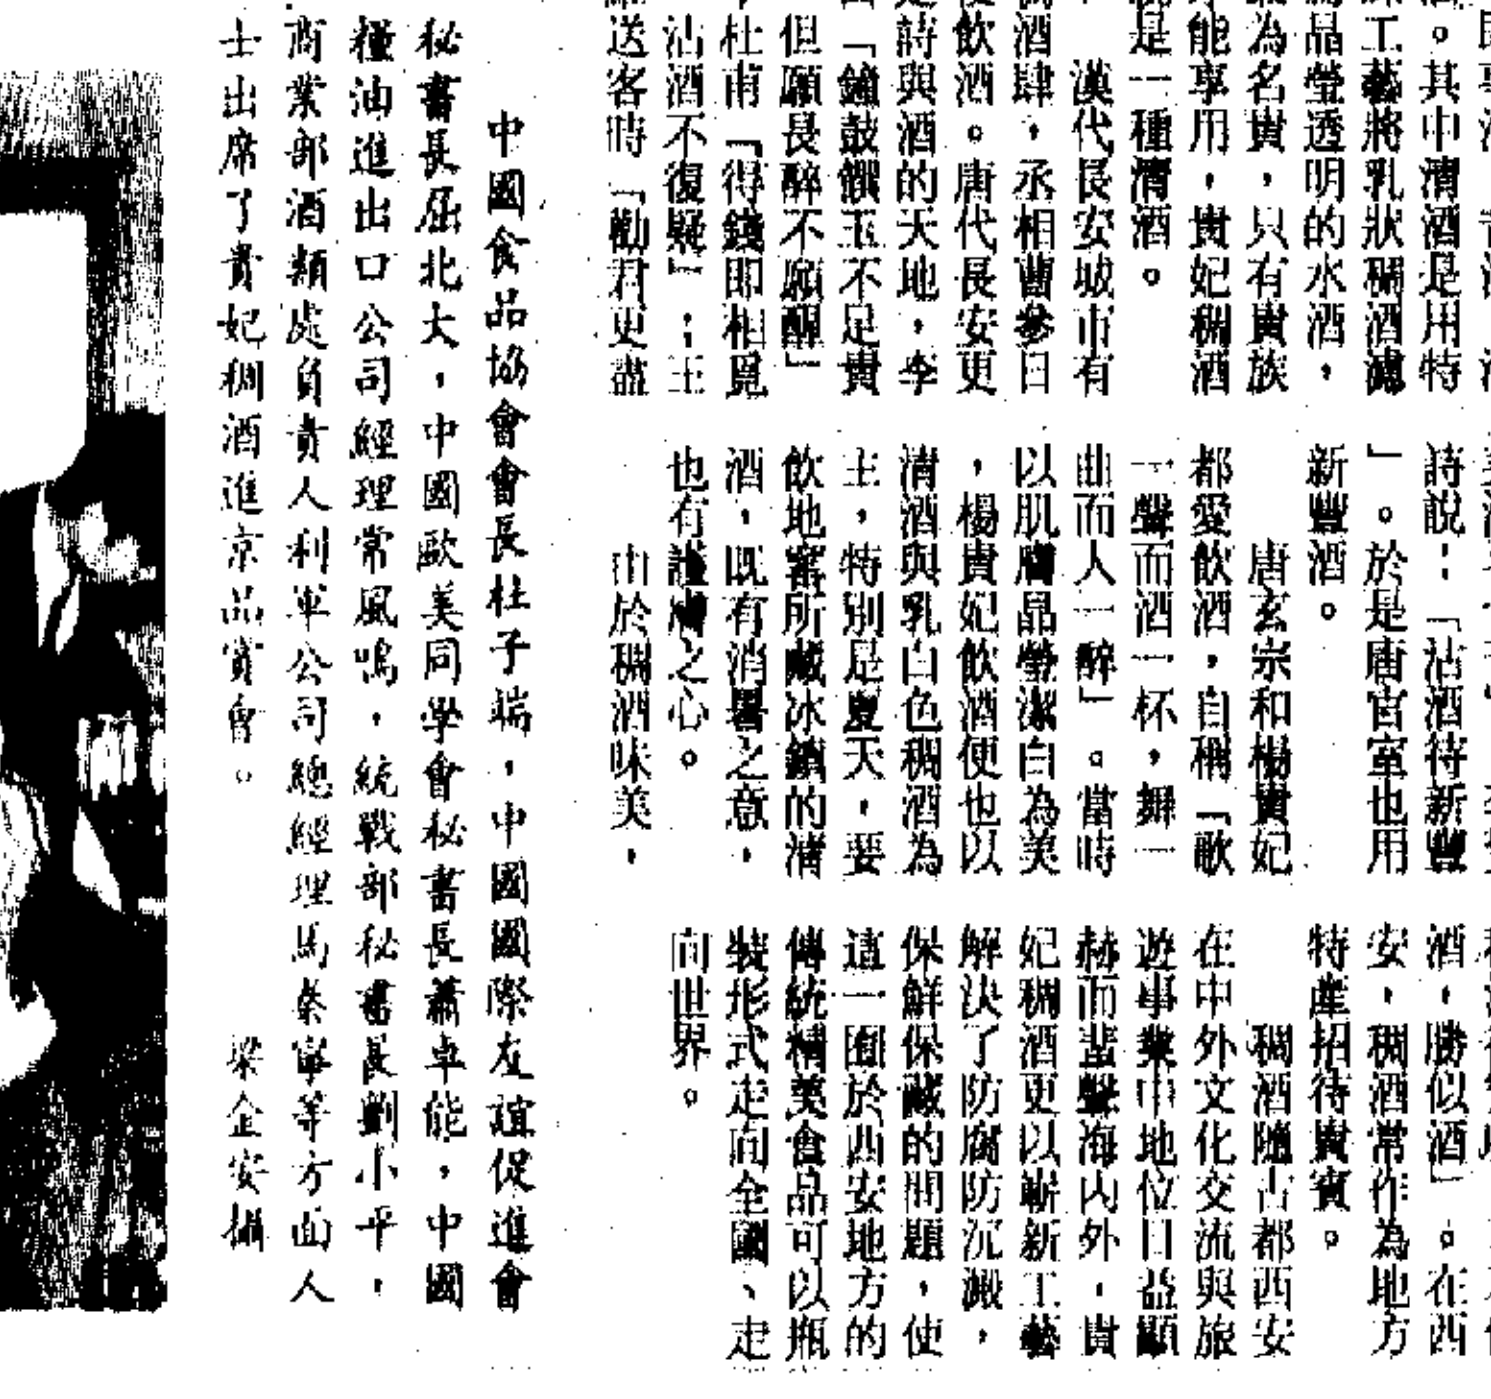 。其中清酒是用特
工藝將乳狀稠酒濾
晶瑩透明的水酒，
為名貴，只有貴族
能享用，貴妃稠酒
是一種清酒。
漢代長安城市有
酒肆，丞相曹參日
飲酒。唐代長安更
詩與酒的天地，李
「鐘鼓饌玉不足貴
但願長醉不願醒」
杜甫「得錢即相覓
沽酒不復疑」；王
送客時「勸君更盡
詩說：「沽酒待新豐
」。於是唐宮室也用
新豐酒。
唐玄宗和楊貴妃
都愛飲酒，自稱「歌
一聲而酒一杯，舞一
曲而人一醉」。當時
以肌膚晶瑩潔白為美
，楊貴妃飲酒便也以
清酒與乳白色稠酒為
主，特別是夏天，要
飲地窖所藏冰鎮的清
酒，既有消暑之意，
也有護膚之心。
由於稠酒味美，
酒，勝似酒」。在西
安，稠酒常作為地方
特產招待貴賓。
稠酒隨古都西安
在中外文化交流與旅
遊事業中地位日益顯
赫而蜚聲海內外，貴
妃稠酒更以嶄新工藝
解決了防腐防沉澱，
保鮮保藏的問題，使
這一囿於西安地方的
傳統精美食品可以瓶
裝形式走向全國、走
向世界。
中國食品協會會長杜子端，中國國際友誼促進會
秘書長屈北大，中國歐美同學會秘書長蕭卓能，中國
糧油進出口公司經理常風鳴，統戰部秘書長劉小平，
商業部酒類處負責人利軍公司總經理馬泰寧等方面人
士出席了貴妃稠酒進京品賞會。　　梁金安攝